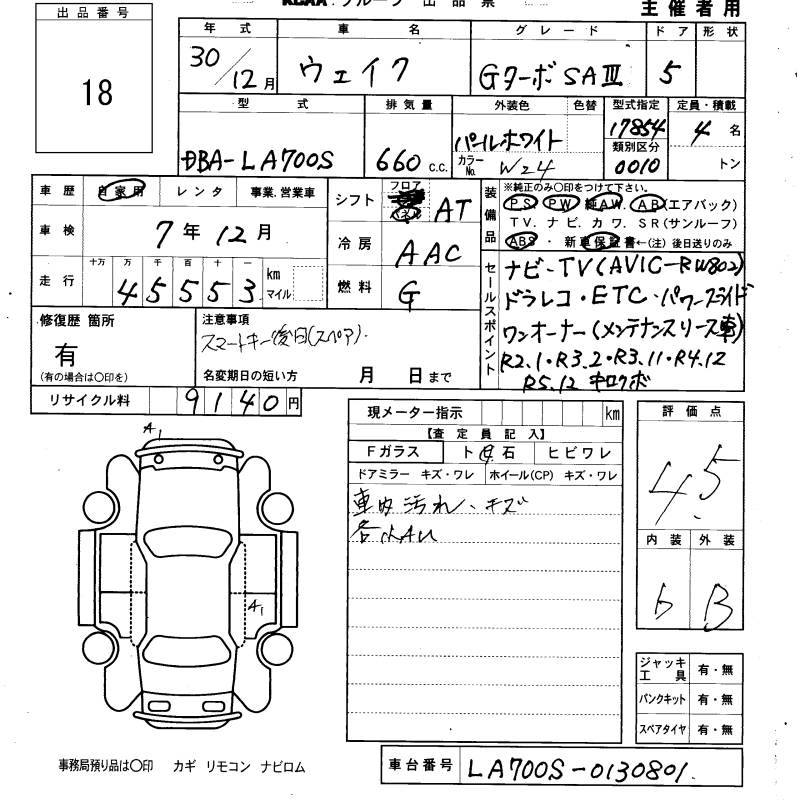 出品票
主催者用
出品番号
18
年式 車名 グレード ドア 形状
30/12月 ウェイク GターボSAⅢ 5
型式 排気量 外装色 色替 型式指定 定員・積載
17854 4名
類別区分
DBA-LA700S 660 c.c. パールホワイト カラーNo. W24 0010 トン
車歴 自家用 レンタ 事業.営業車
シフト フロア AT
装備品 ※純正のみ〇印をつけて下さい。
PS PW 純AW. AB(エアバック)
TV. ナビ. カワ. SR(サンルーフ)
ABS・新車保証書←(注) 後日送りのみ
車検 7年12月
冷房 AAC
走行 十万 万 千 百 十 一
45553 km マイル
燃料 G
セールスポイント
ナビ-TV(AVIC-RW802)
ドラレコ・ETC・パワースライド
ワンオーナー(メンテナンスリース車)
R2.1・R3.2・R3.11・R4.12
R5.12 キロクボ
修復歴 箇所
有
(有の場合は〇印を)
注意事項
スマートキー後日(スペア).
名変期日の短い方 月 日まで
リサイクル料 9140円
現メーター指示 km
【査定員記入】
Fガラス ト 石 ヒビワレ
ドアミラー キズ・ワレ ホイール(CP) キズ・ワレ
車内汚れ、キズ
評価点
4.5
内装 外装
b B
A1
A1
ジャッキ工具 有・無
パンクキット 有・無
スペアタイヤ 有・無
事務局預り品は〇印 カギ リモコン ナビロム
車台番号 LA700S-0130801.